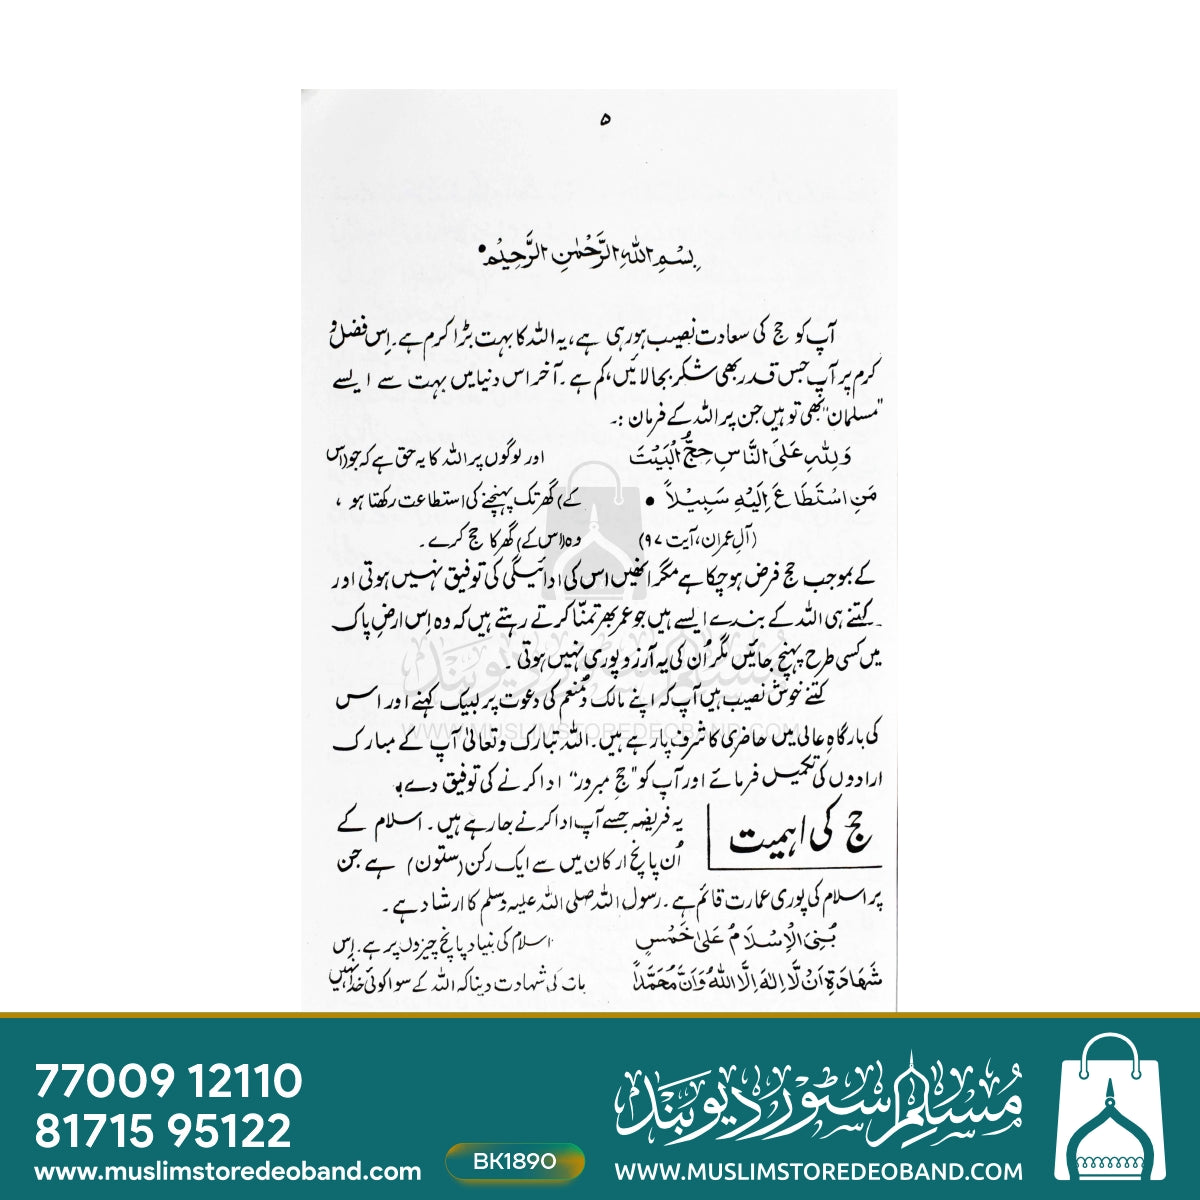 ۵
بِسْمِ اللہِ الرَّحْمٰنِ الرَّحِیْمِ •
آپ کو حج کی سعادت نصیب ہو رہی ہے، یہ اللہ کا بہت بڑا کرم ہے۔ اِس فضل و
کرم پر آپ جس قدر بھی شکر بجا لائیں، کم ہے۔ آخر اس دنیا میں بہت سے ایسے
"مسلمان" بھی تو ہیں جن پر اللہ کے فرمان :۔
وَلِلّٰہِ عَلَی النَّاسِ حِجُّ الْبَیْتِ اور لوگوں پر اللہ کا یہ حق ہے کہ جو (اس
مَنِ اسْتَطَاعَ اِلَیْہِ سَبِیْلاً • کے) گھر تک پہنچنے کی استطاعت رکھتا ہو ،
(آلِ عمران، آیت ۹۷) وہ (اس کے) گھر کا حج کرے۔
کے بموجب حج فرض ہو چکا ہے مگر انھیں اس کی ادائیگی کی توفیق نہیں ہوتی اور
کتنے ہی اللہ کے بندے ایسے ہیں جو عمر بھر تمنّا کرتے رہتے ہیں کہ وہ اِس ارضِ پاک
میں کسی طرح پہنچ جائیں مگر اُن کی یہ آرزو پوری نہیں ہوتی ۔
کتنے خوش نصیب ہیں آپ کہ اپنے مالک و مُنعم کی دعوت پر لبیک کہنے اور اس
کی بارگاہِ عالی میں حاضری کا شرف پا رہے ہیں۔ اللہ تبارک و تعالیٰ آپ کے مبارک
ارادوں کی تکمیل فرمائے اور آپ کو "حجِ مبرور" ادا کرنے کی توفیق دے۔
حج کی اہمیت
یہ فریضہ جسے آپ ادا کرنے جا رہے ہیں۔ اسلام کے
اُن پانچ ارکان میں سے ایک رکن (ستون) ہے جن
پر اسلام کی پوری عمارت قائم ہے۔ رسول اللہ صلی اللہ علیہ وسلم کا ارشاد ہے۔
بُنِیَ الْاِسْلَامُ عَلٰی خَمْسٍ اسلام کی بنیاد پانچ چیزوں پر ہے۔ اِس
شَھَادَۃِ اَنْ لَّا اِلٰہَ اِلَّا اللہُ وَاَنَّ مُحَمَّدًا بات کی شہادت دینا کہ اللہ کے سوا کوئی خدا نہیں
مسلم سٹور دیوبند
WWW.MUSLIMSTOREDEOBAND.COM
77009 12110
81715 95122
www.muslimstoredeoband.com
BK1890
مُسلم سٹور دیوبند
WWW.MUSLIMSTOREDEOBAND.COM